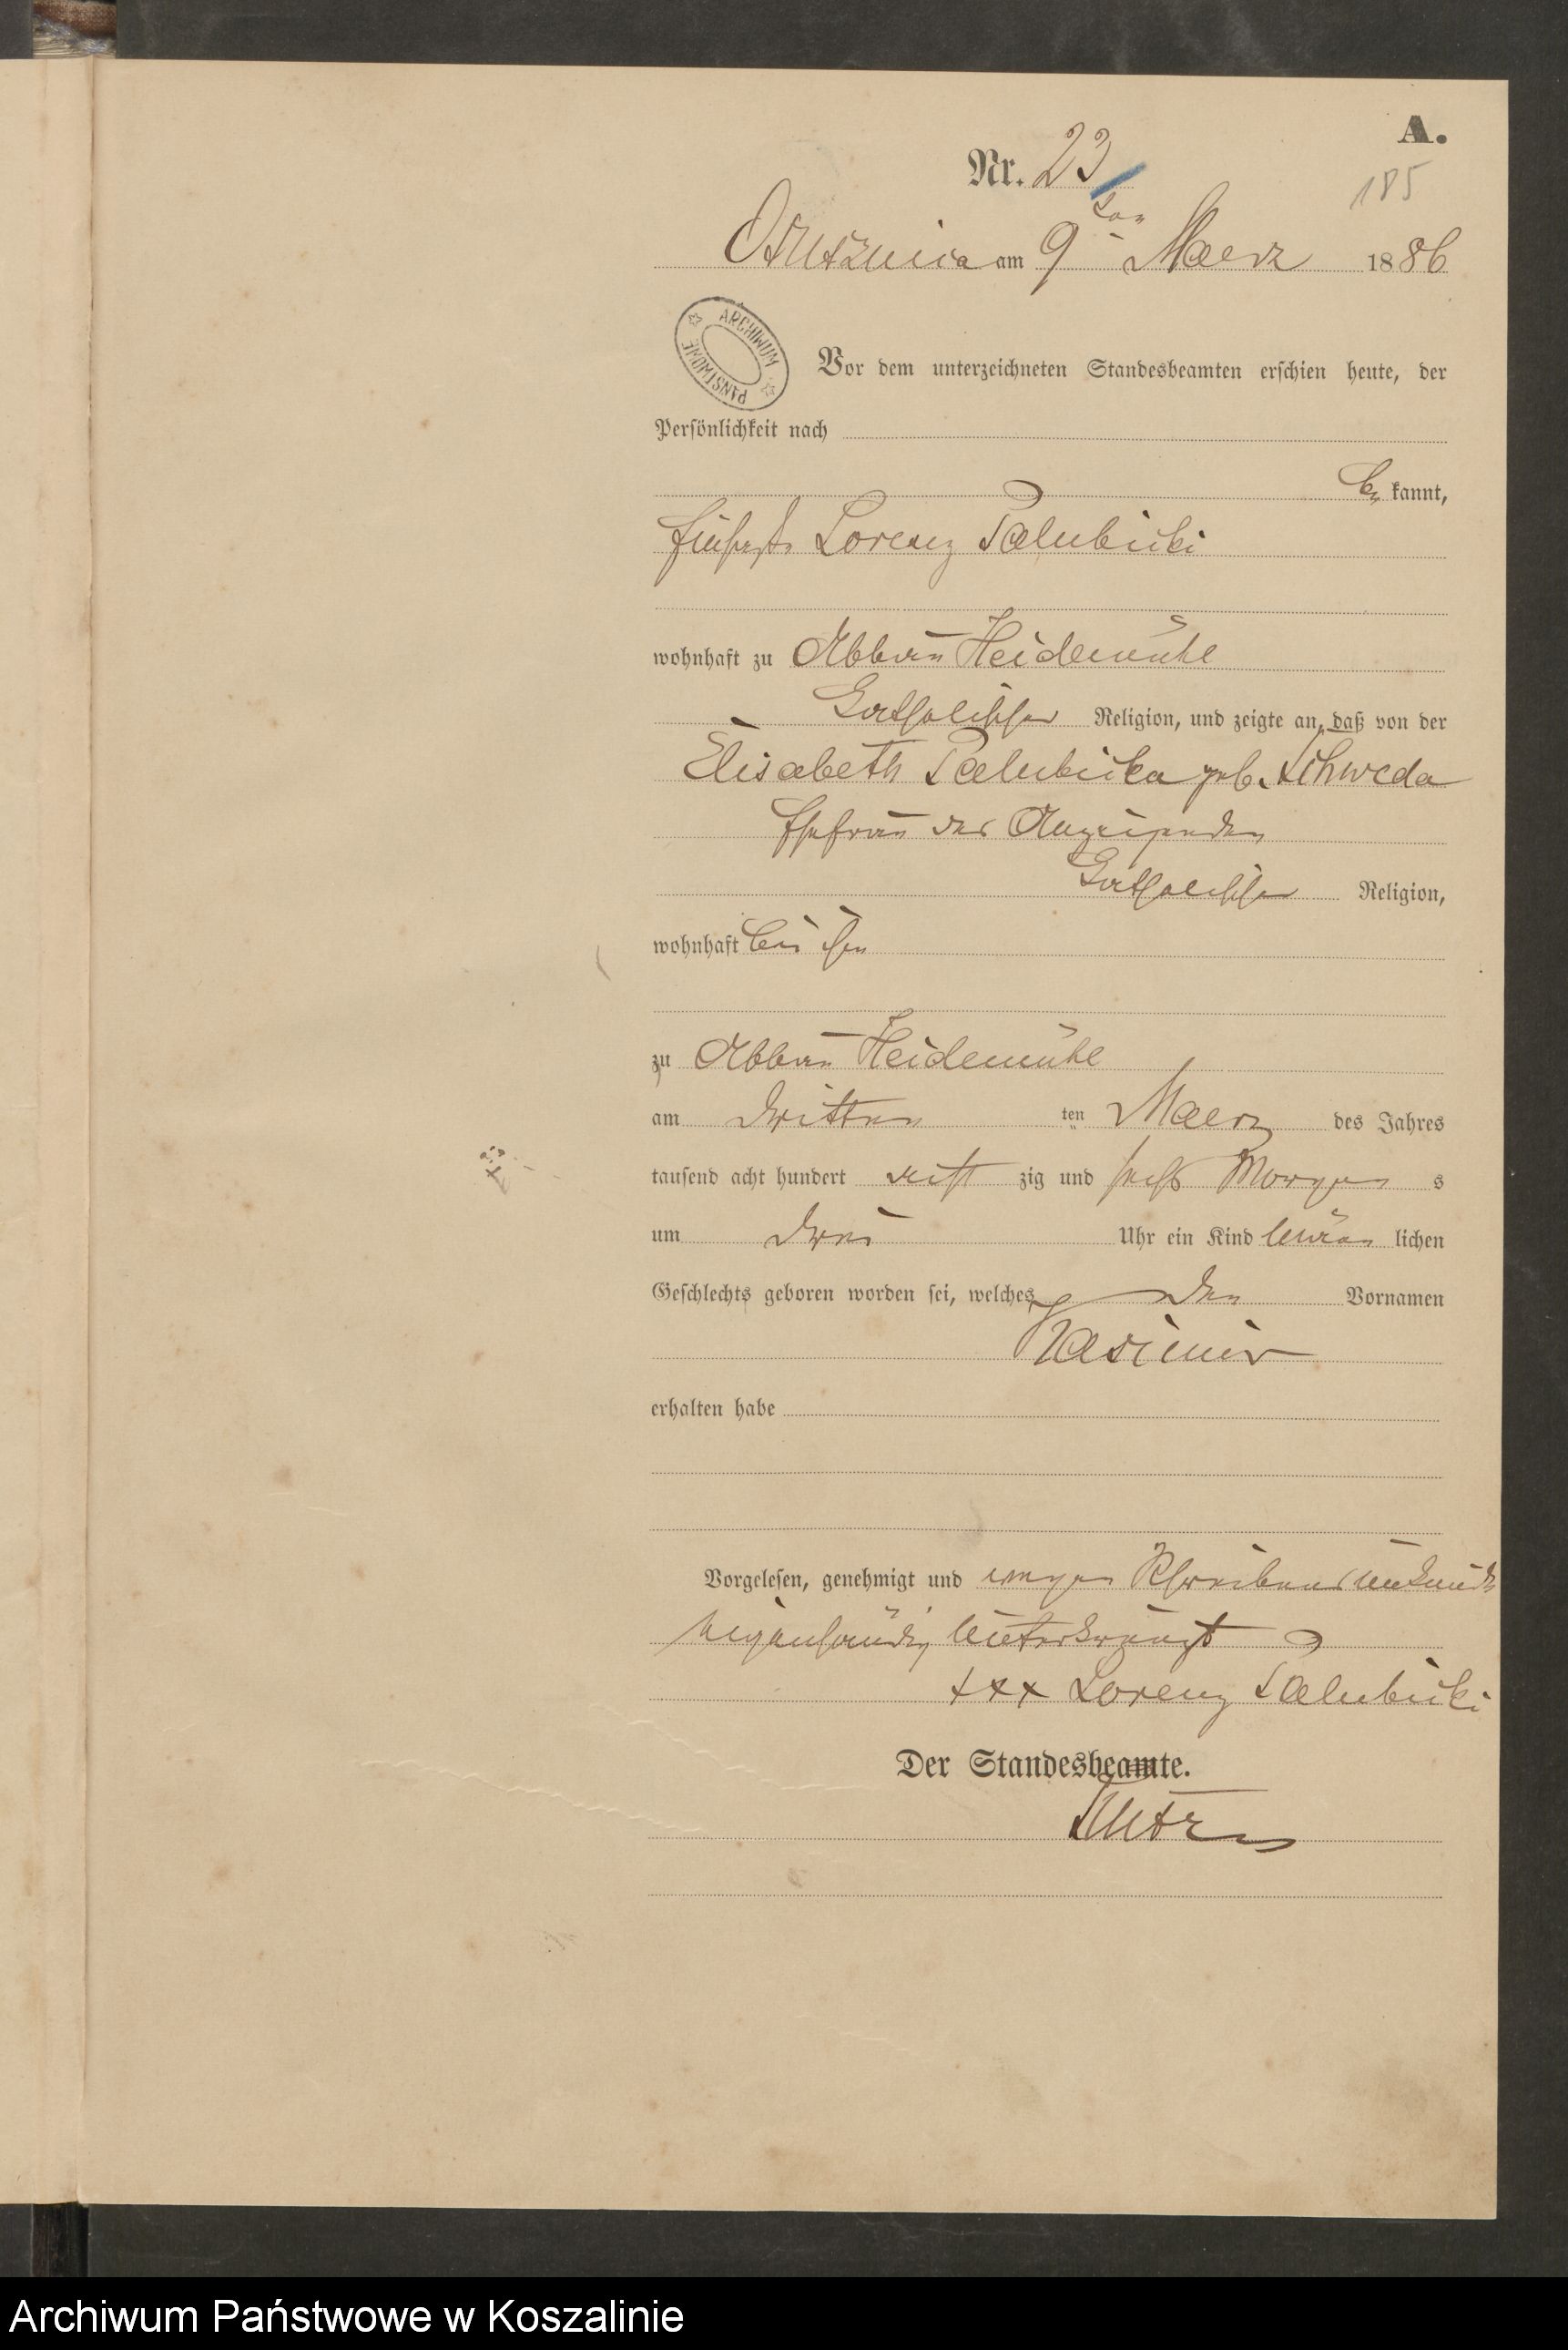 A.
Nr. 23
185
am 9ten Maerz 1886
ARCHIWUM PAŃSTWOWE
Vor dem unterzeichneten Standesbeamten erschien heute, der
Persönlichkeit nach
be kannt,
Lorenz Salubicki
wohnhaft zu Abbau Heidemühl
katholischer Religion, und zeigte an, daß von der
Elisabeth Salubicka geb. Schweda
Ehefrau des Anzeigenden
katholischer Religion,
wohnhaft bei ihm
zu Abbau Heidemühl
am dritten ten Maerz des Jahres
tausend acht hundert acht zig und sechs Morgen s
um drei Uhr ein Kind männ lichen
Geschlechts geboren worden sei, welches den Vornamen
Kasimir
erhalten habe
Vorgelesen, genehmigt und wegen Schreibensunkunde
eigenhändig unterkreuzt
+++ Lorenz Salubicki
Der Standesbeamte.
Archiwum Państwowe w Koszalinie